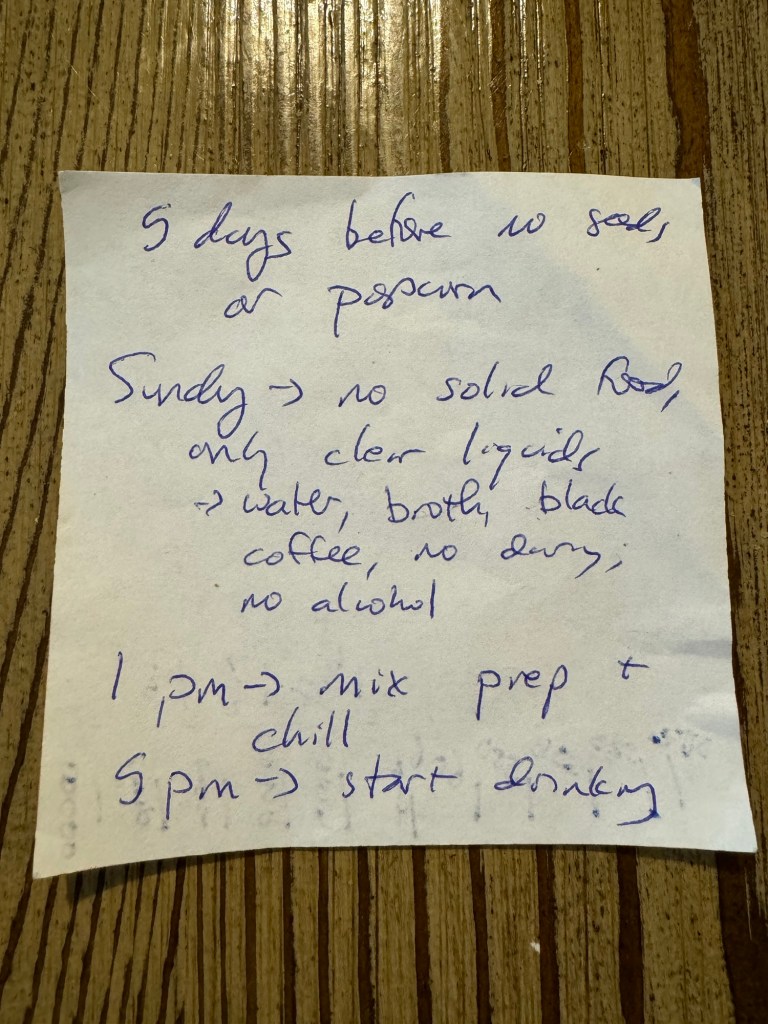 5 days before no seeds
or popcorn
Sunday → no solid food,
only clear liquids
→ water, broth, black
coffee, no dairy,
no alcohol
1 pm → mix prep +
chill
5 pm → start drinking